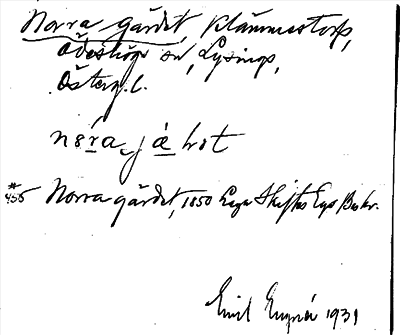 Norra gärdet, Klämmestorp,
Ödeshögs sn, Lysings,
Österg. l.
nora jä hot
* 455 Norra gärdet, 1850 Laga Skiftes Egs Beskr.
Emil 1931